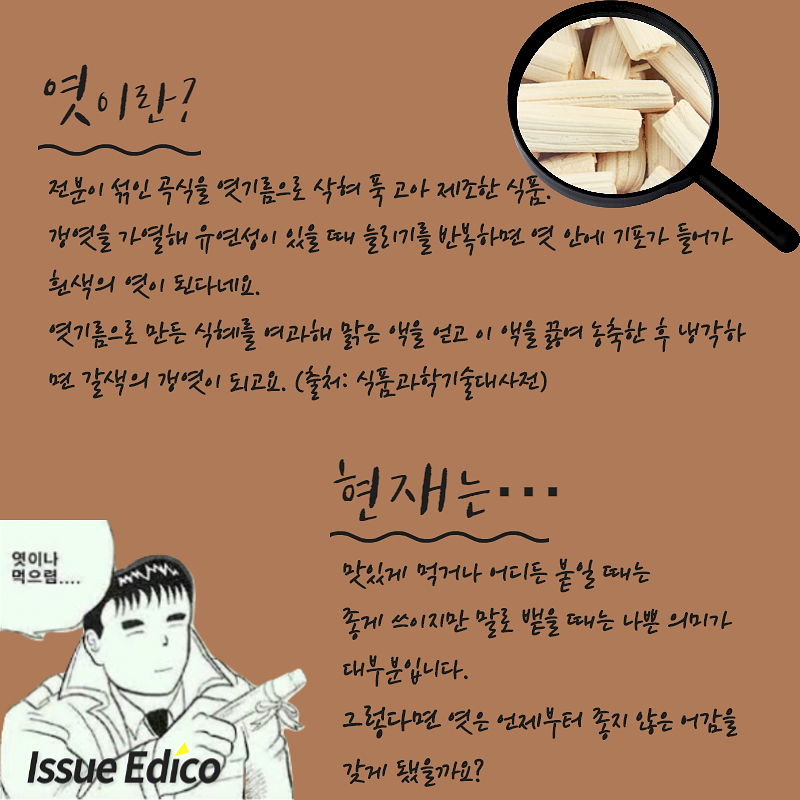 엿이란?
전분이 섞인 곡식을 엿기름으로 삭혀 푹 고아 제조한 식품.
갱엿을 가열해 유연성이 있을 때 늘리기를 반복하면 엿 안에 기포가 들어가
흰색의 엿이 된다네요.
엿기름으로 만든 식혜를 여과해 맑은 액을 얻고 이 액을 끓여 농축한 후 냉각하
면 갈색의 갱엿이 되고요. (출처: 식품과학기술대사전)
현재는...
맛있게 먹거나 어디든 붙일 때는
좋게 쓰이지만 말로 뱉을 때는 나쁜 의미가
대부분입니다.
그렇다면 엿은 언제부터 좋지 않은 어감을
갖게 됐을까요?
엿이나
먹으렴....
Issue Edico